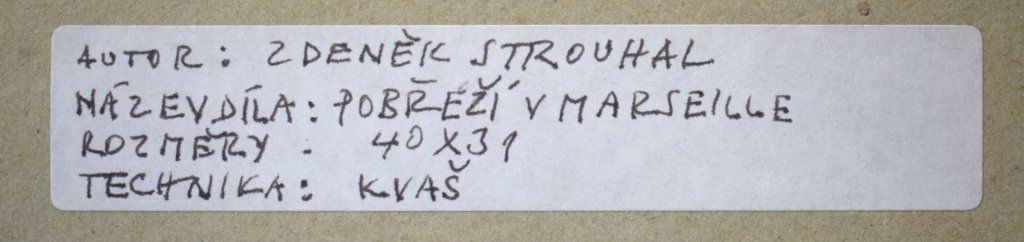 AUTOR: ZDENĚK STROUHAL
NÁZEV DÍLA: POBŘEŽÍ V MARSEILLE
ROZMĚRY: 40X31
TECHNIKA: KVAŠ